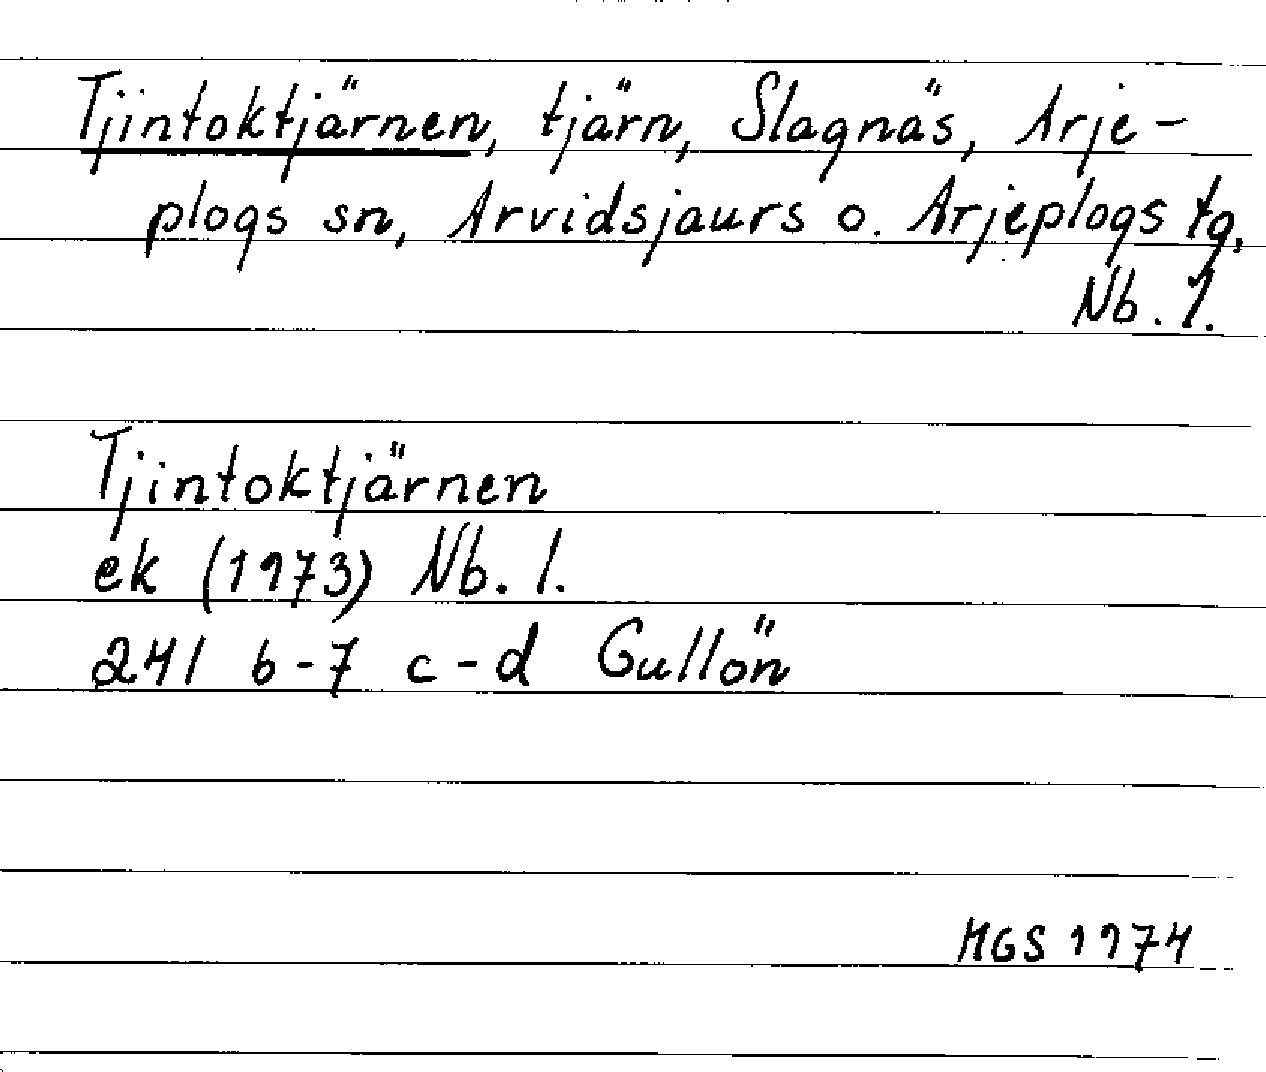 Tjintoktjärnen, tjärn, Slagnäs, Arje-
plogs sn, Arvidsjaurs o. Arjeplogs tg,
Nb. l.
Tjintoktjärnen
ek (1973) Nb. l.
24I 6-7 c-d Gullön
MGS 1974